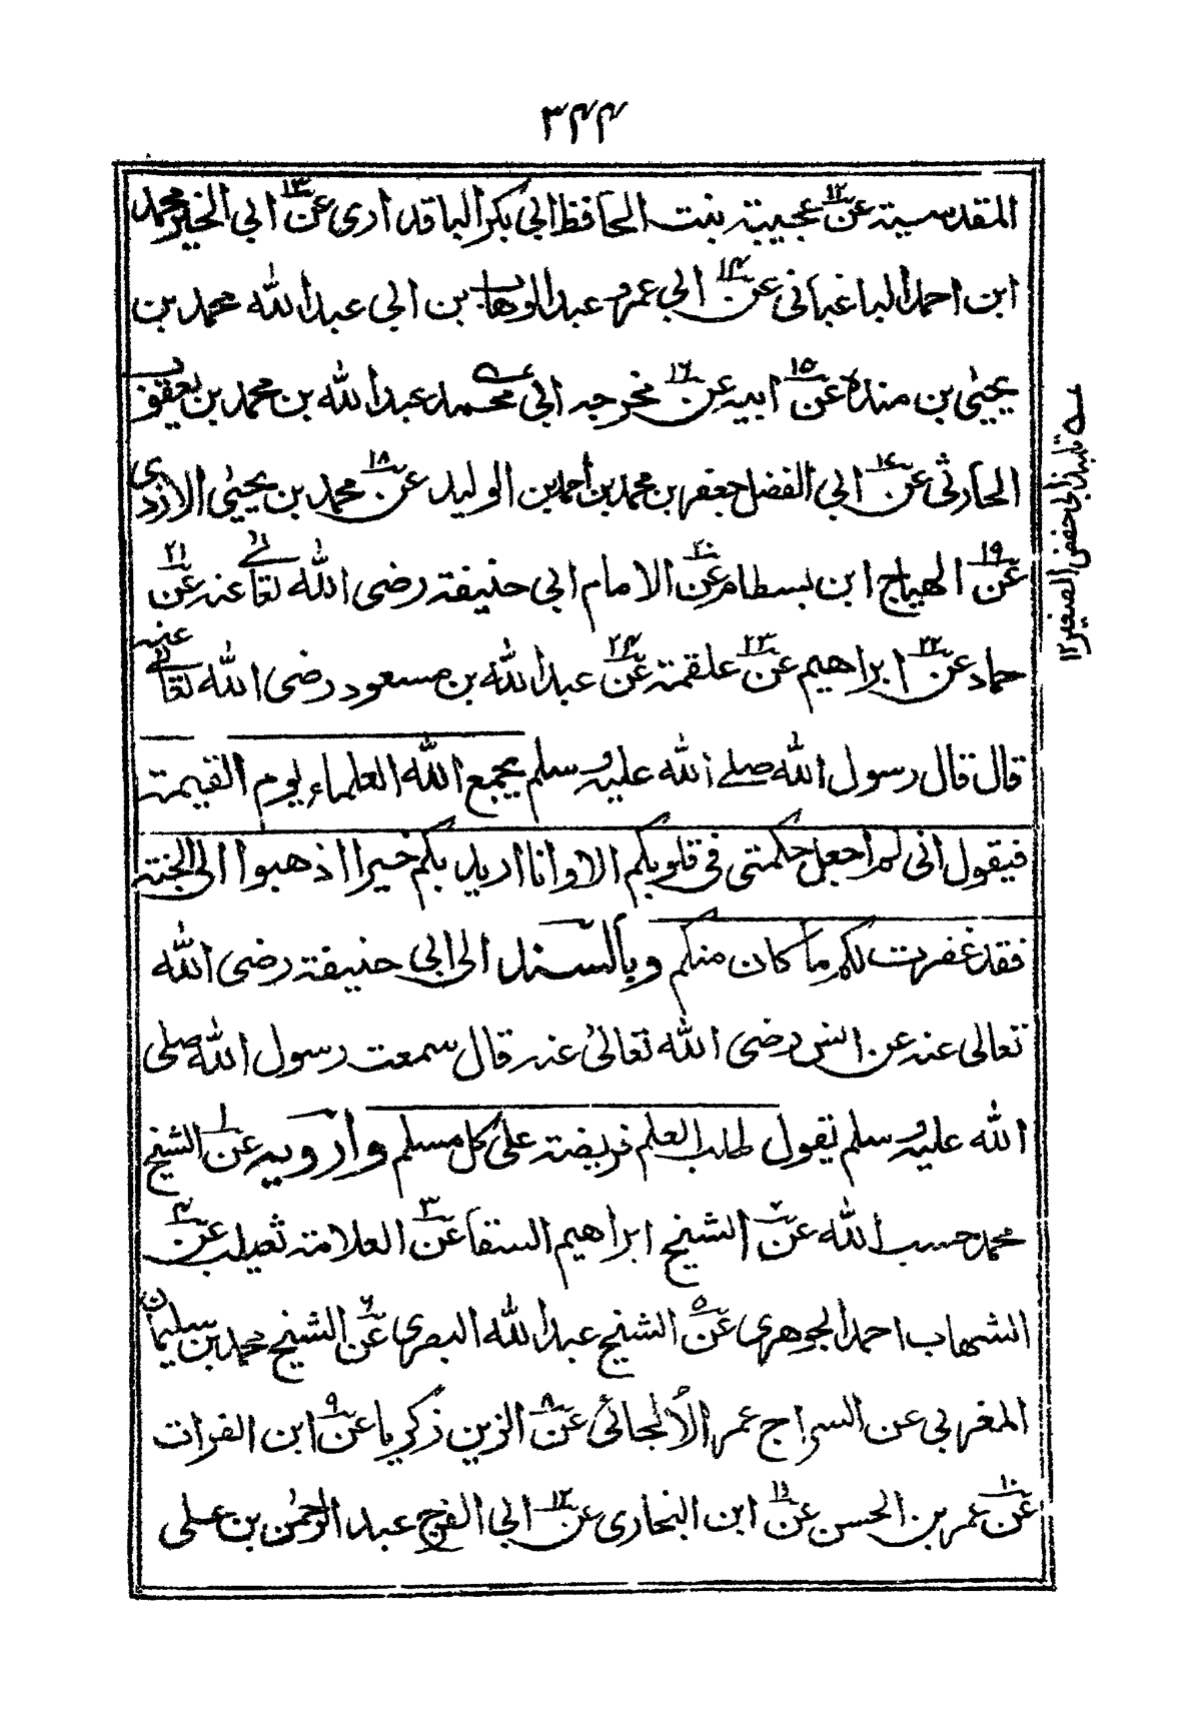 ٣٤٤
المقدسية عن١٢ عجيبة بنت الحافظ ابي بكر الباقداري عن١٣ ابي الخير محمد
ابن احمد الباغباني عن١٤ ابي عمرو عبد الوهاب بن ابي عبد الله محمد بن
يحيى بن منده عن١٥ ابيه عن١٦ مخرجه ابي محمد عبد الله بن محمد بن يعقوب
الحارثي عن١٧ ابي الفضل جعفر بن محمد بن احمد بن الوليد عن١٨ محمد بن يحيى الازدي
عن١٩ الهياج ابن بسطام عن٢٠ الامام ابي حنيفة رضى الله تعالے عنه عن٢١
حماد عن٢٢ ابراهيم عن٢٣ علقمة عن٢٤ عبد الله بن مسعود رضى الله تعالے عنه
قال قال رسول الله صلے الله عليه وسلم يجمع الله العلماء يوم القيمة
فيقول انى لم اجعل حكمتى فى قلوبكم الا وانا اريد بكم خيرا اذهبوا الى الجنة
فقد غفرت لكم ما كان منكم وبالسند الى ابي حنيفة رضى الله
تعالى عنه عن انس رضى الله تعالىٰ عنه قال سمعت رسول الله صلى
الله عليه وسلم يقول طلب العلم فريضة على كل مسلم وارويه عن١ الشيخ
محمد حسب الله عن٢ الشيخ ابراهيم السقا عن٣ العلامة ثعيلب عن٤
الشهاب احمد الجوهرى عن٥ الشيخ عبد الله البصرى عن٦ الشيخ محمد بن سليمان
المغربى عن السراج عمر الألجائى عن٨ الزين زكريا عن٩ ابن الفرات
عن١٠ عمر بن الحسن عن١١ ابن البخارى عن١٢ ابي الفرج عبد الرحمٰن بن على
تلميذ ابى حفص الصغير ١٢